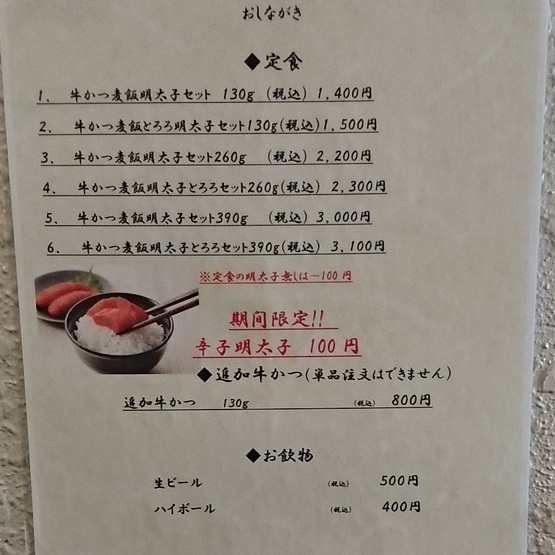 おしながき
◆定食
1. 牛かつ麦飯明太子セット 130g (税込) 1,400円
2. 牛かつ麦飯とろろ明太子セット130g(税込)1,500円
3. 牛かつ麦飯明太子セット260g (税込) 2,200円
4. 牛かつ麦飯明太子とろろセット260g(税込) 2,300円
5. 牛かつ麦飯明太子セット390g (税込) 3,000円
6. 牛かつ麦飯明太子とろろセット390g(税込) 3,100円
※定食の明太子無しは−100円
期間限定!!
辛子明太子 100円
◆追加牛かつ(単品注文はできません)
追加牛かつ 130g (税込) 800円
◆お飲物
生ビール (税込) 500円
ハイボール (税込) 400円